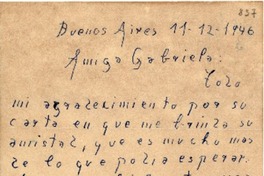 857
Buenos Aires 11-12-1946
Amiga Gabriela:
Todo
mi agradecimiento por su
carta en que me brinda su
amistad, que es mucho mas
de lo que podia esperar.